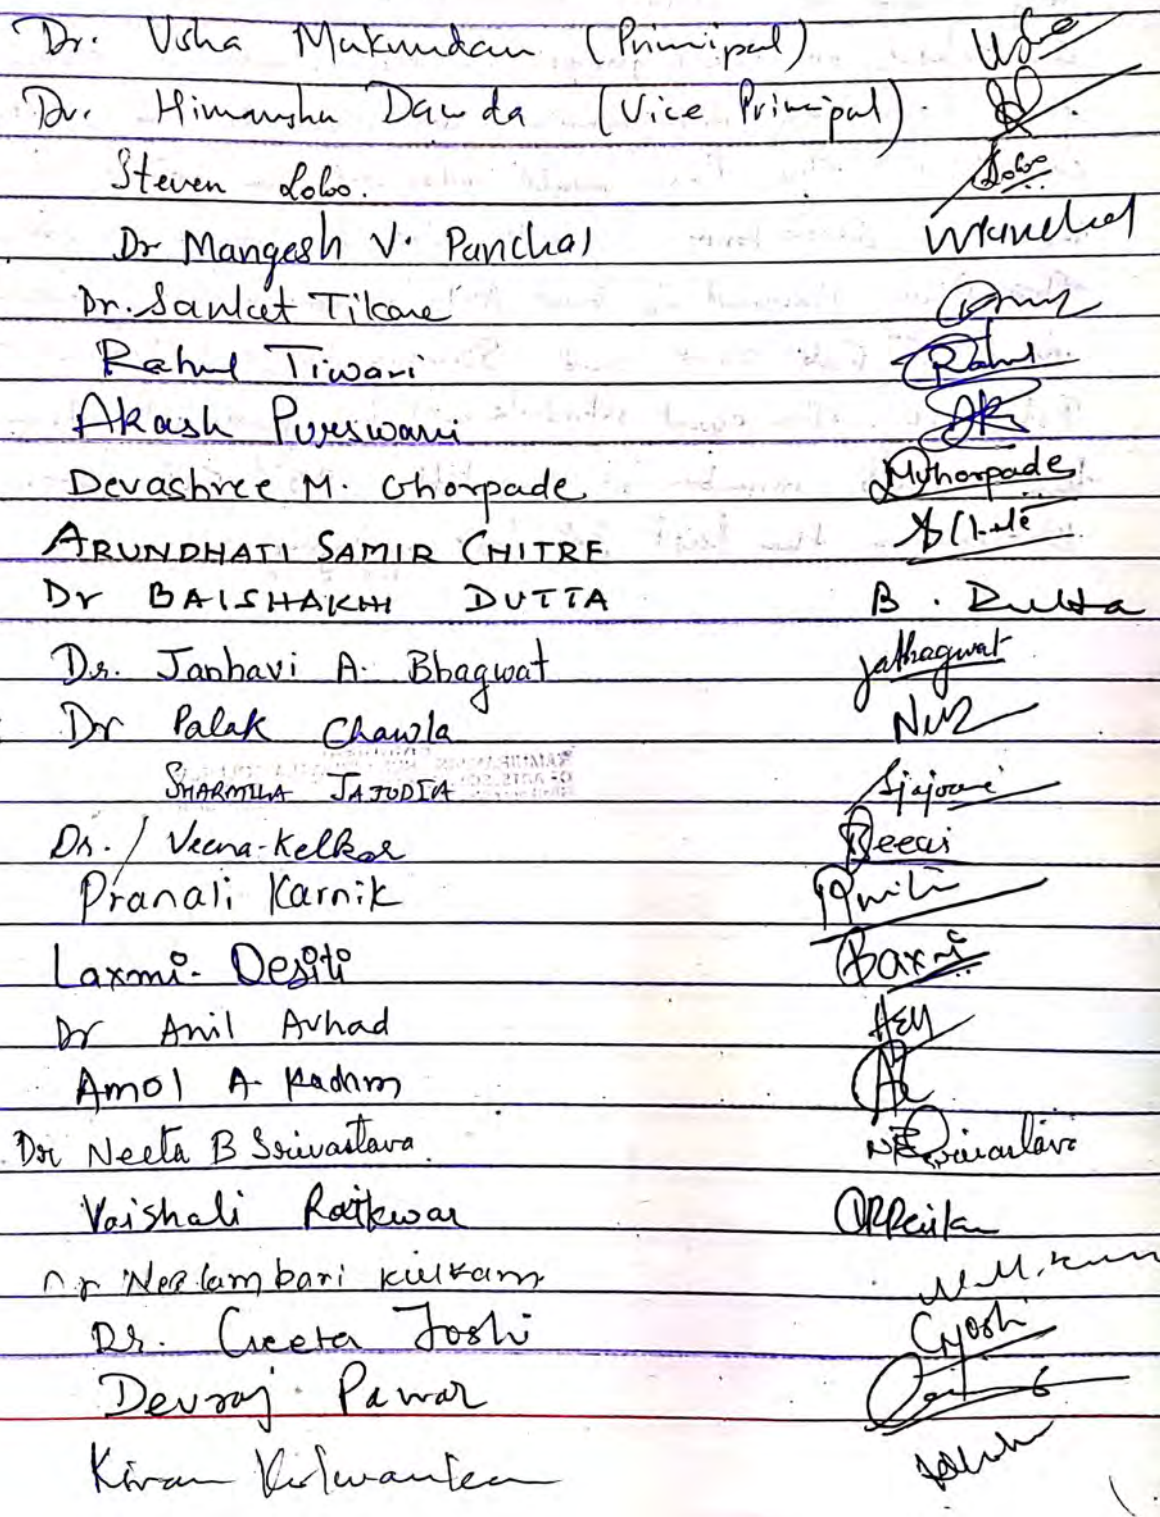 Dr. Usha Mukundan (Principal) Usha
Dr. Himanshu Dawda (Vice Principal)
Steven Lobo. Lobo
Dr Mangesh V. Panchal
Dr. Sanket Tikare
Rahul Tiwari Rahul
Akash Purswani AK
Devashree M. Ghorpade DMGhorpade
ARUNDHATI SAMIR CHITRE
Dr BAISHAKHI DUTTA B. Dutta
Dr. Janhavi A. Bhagwat jabhagwat
Dr Palak Chawla
SHARMILA JAJODIA
Dr. / Veena-Kelkar
Pranali Karnik
Laxmi. Desiti Laxmi
Dr Anil Avhad
Amol A. Kadam
Dr Neeta B Srivastava. NBSrivastava
Vaishali Raikwar
Dr Neelambari Kulkarni
Dr. Geeta Joshi GJoshi
Devraj Pawar
Kiran